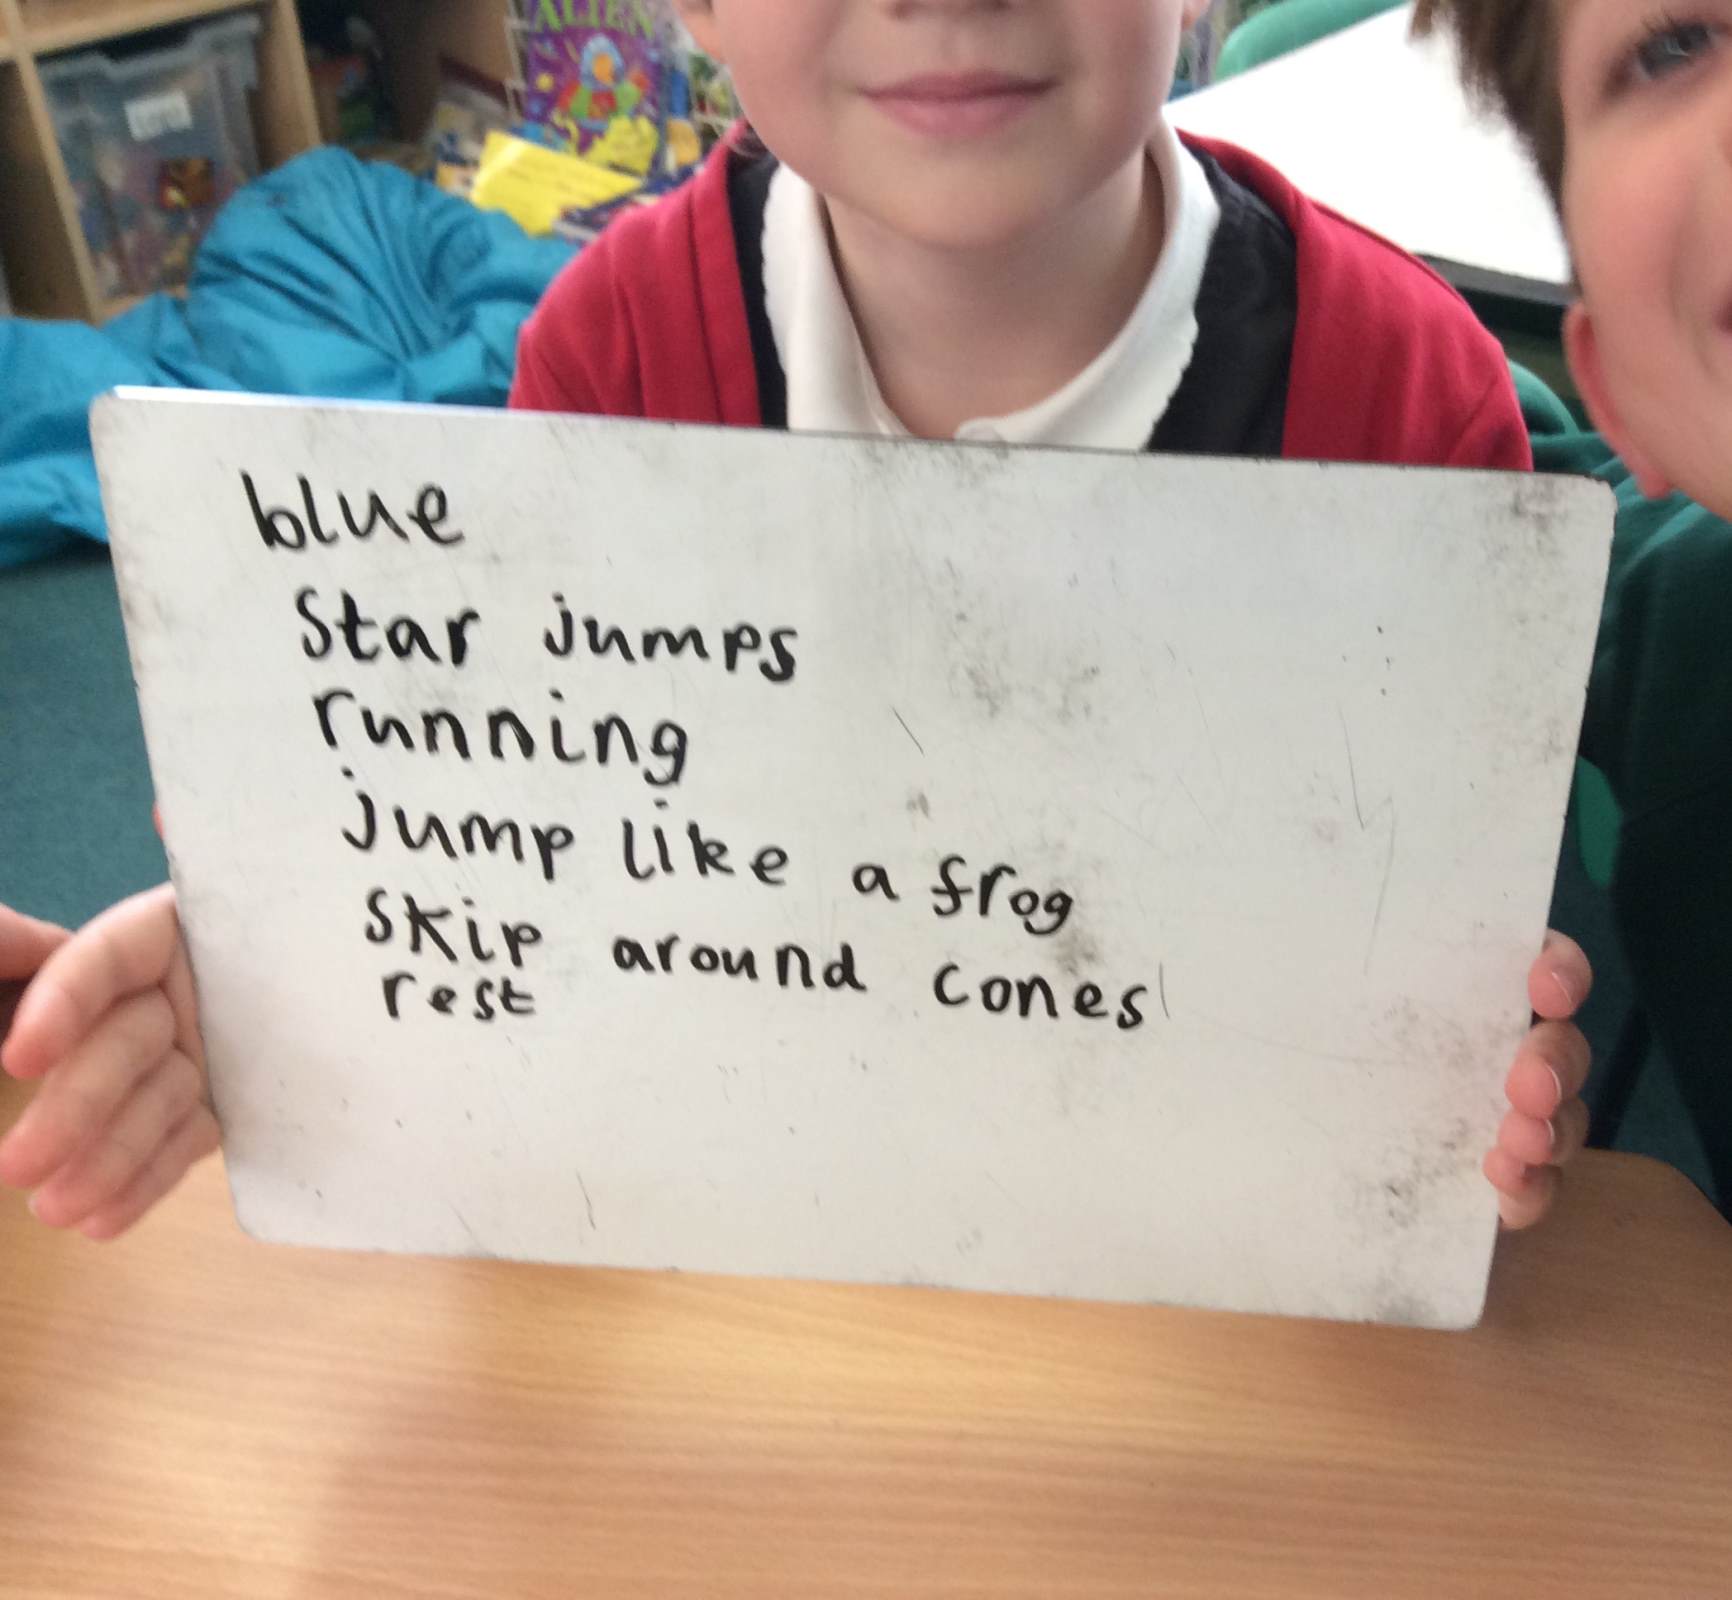 ALIEN
blue
Star jumps
running
jump like a frog
skip around cones
rest